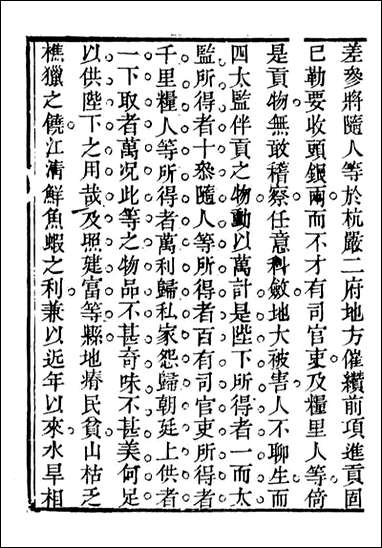 差參將隨人等於杭嚴二府地方催纘前項進貢固
已勒要收頭銀兩而不才有司官吏及糧里人等倚
是貢物無敢稽察任意科斂地大被害人不聊生而
四太監伴貢之物動以萬計是陛下所得者一而太
監所得者十叅隨人等所得者百有司官吏所得者
千里糧人等所得者萬利歸私家怨歸朝廷上供者
一下取者萬况此等之物品不甚奇味不甚美何足
以供陛下之用哉及照建富等縣地瘠民貧山枯乏
樵獵之饒江清鮮魚蝦之利兼以近年以來水旱相